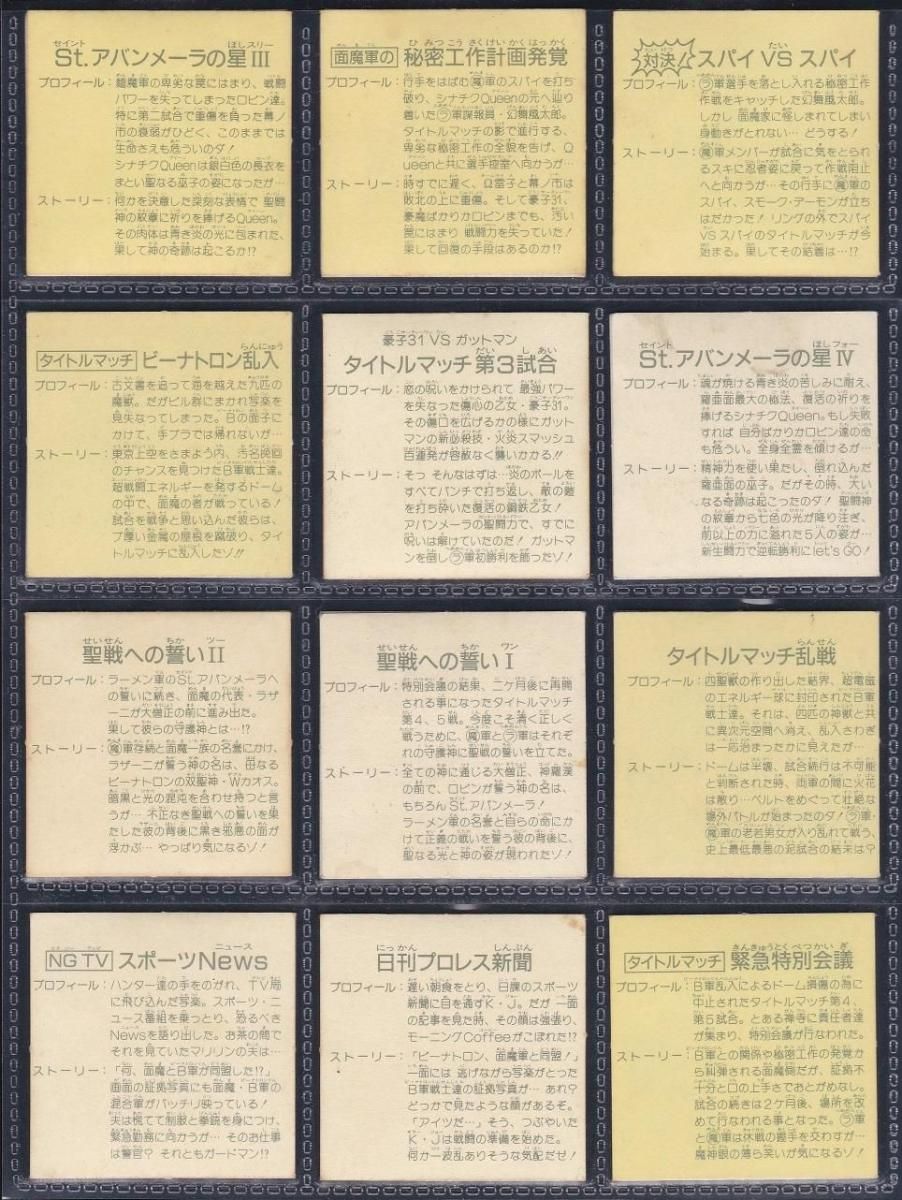 St.アバンメーラの星III
プロフィール：麺魔軍の卑劣な罠にはまり、戦闘
パワーを失ってしまったロビン達。
特に第二試合で重傷を負った幕ノ
市の衰弱がひどく、このままでは
生命さえも危ういのダ！
シナチクQueenは銀白色の長衣を
まとい聖なる巫子の姿になったが…
ストーリー：何かを決意した深刻な表情で 聖闘
神の紋章に祈りを捧げるQueen。
その肉体は青き炎の光に包まれた、
果して神の奇跡は起こるか!?
面魔軍の 秘密工作計画発覚
プロフィール：行手をはばむ魔軍のスパイを打ち
破り、シナチクQueenの元へ辿り
着いたラ軍諜報員・幻舞風太郎。
タイトルマッチの影で進行する、
卑劣な秘密工作の全貌を告げ、Q
ueenと共に選手控室へ向かうが…
ストーリー：時すでに遅く、Ω雲子と幕ノ市は
敗北の上に重傷。そして豪子31、
豪魔ばかりかロビンまでも、汚い
罠にはまり 戦闘力を失っていた！
果して回復の手段はあるのか!?
対決！ スパイ VS スパイ
プロフィール：ラ軍選手を落とし入れる秘密工作
作戦をキャッチした幻舞風太郎。
しかし 面魔家に怪しまれてしまい
身動きがとれない… どうする！
ストーリー：魔軍メンバーが試合に気をとられ
るスキに忍者姿に戻って作戦阻止
へと向かうが… その行手に魔軍の
スパイ、スモーク・デーモンが立ち
はだかった！ リングの外でスパイ
VS スパイのタイトルマッチが今
始まる。果してその結着は…!?
タイトルマッチ ビーナトロン乱入
プロフィール：古文書を追って海を越えた九匹の
魔獣。だがビル群にまかれ写楽を
見失なってしまった。Bの面子に
かけて、手ブラでは帰れないが…
ストーリー：東京上空をさまよう内、汚名挽回
のチャンスを見つけたB軍戦士達。
超戦闘エネルギーを発するドーム
の中で、面魔の者が戦っている！
試合を戦争と思い込んだ彼らは、
ブ厚い金属の屋根を蹴破り、タイ
トルマッチに乱入したゾ!!
豪子31 VS ガットマン
タイトルマッチ 第3試合
プロフィール：恋の呪いをかけられて 最強パワー
を失なった傷心の乙女・豪子31。
その傷口を広げるかの様にガット
マンの新必殺技・火炎スマッシュ
百連発が容赦なく襲いかかる!!
ストーリー：そっ そんなはずは…炎のボールを
すべてパンチで打ち返し、敵の鎧
を打ち砕いた復活の鋼鉄乙女！
アバンメーラの聖闘力で、すでに
呪いは解けていたのだ！ ガットマン
を倒しラ軍初勝利を飾ったゾ！
St.アバンメーラの星IV
プロフィール：魂が焼ける青き炎の苦しみに耐え、
羅亜面最大の秘法、復活の祈りを
捧げるシナチクQueen。もし失敗
すれば 自分ばかりかロビン達の命
も危うい。全身全霊を傾けるが…
ストーリー：精神力を使い果たし、倒れ込んだ
羅亜面の巫子。だがその時、大い
なる奇跡は起こったのダ！ 聖闘神
の紋章から七色の光が降り注ぎ、
前以上の力に溢れた5人の姿が…
新生闘力で逆転勝利にlet'sGO！
聖戦への誓いII
プロフィール：ラーメン軍のSt.アバンメーラへ
の誓いに続き、面魔の代表・ラザ
ーニが大僧正の前に進み出た。
果して彼らの守護神とは…!?
ストーリー：魔軍存続と面魔一族の名誉にかけ、
ラザーニが誓う神の名は、母なる
ビーナトロンの双聖神・Wカオス。
暗黒と光の混沌を合わせ持つと言
うが… 不正なき聖戦への誓いを果
たした彼の背後に黒き邪悪の面が
浮かぶ… やっぱり気になるゾ！
聖戦への誓いI
プロフィール：特別会議の結果、二ケ月後に再開
される事になったタイトルマッチ
第4、5戦。今度こそ清く正しく
戦うために、魔軍とラ軍はそれぞ
れの守護神に聖戦の誓いを立てた。
ストーリー：全ての神に通じる大僧正、神羅漢
の前で、ロビンが誓う神の名は、
もちろん St.アバンメーラ！
ラーメン軍の名誉と自らの命にか
けて正義の戦いを誓う彼の背後に、
聖なる光と神の姿が現われたゾ！
タイトルマッチ乱戦
プロフィール：四聖獣の作り出した結界、超電磁
のエネルギー球に封印されたB軍
戦士達。それは、四匹の神獣と共
に異次元空間へ消え、乱入さわぎ
は一応治まったかに見えたが…
ストーリー：ドームは半壊、試合続行は不可能
と判断された時、両軍の間に火花
は散り…ベルトをめぐって壮絶な
場外バトルが始まったのダ！ラ軍・
魔軍の老若男女が入り乱れて戦う、
史上最低最悪の泥試合の結末は？
NG TV スポーツNews
プロフィール：ハンター達の手をのがれ、TV局
に飛び込んだ写楽。スポーツ・ニ
ュース番組を乗っとり、恐るべき
Newsを語り出した。お茶の間で
それを見ていたマリリンの夫は…
ストーリー：「何、面魔とB軍が同盟した!?」
画面の証拠写真にも面魔・B軍の
混合軍がバッチリ映っている！
夫は慌てて制服と拳銃を身につけ、
緊急勤務に向かうが… そのお仕事
は警官？ それともガードマン!?
日刊プロレス新聞
プロフィール：遅い朝食をとり、日課のスポーツ
新聞に目を通すK・J。だが 一面
の記事を見た時、その顔は強張り、
モーニングCoffeeがこぼれた!?
ストーリー：「ビーナトロン、面魔軍と同盟！」
一面には 逃げながら写楽がとった
B軍戦士達の証拠写真が… あれ？
どっかで見たような顔があるぞ。
「アイツだ…」そう、つぶやいた
K・Jは戦闘の準備を始めた。
何か一波乱ありそうな気配だぜ！
タイトルマッチ 緊急特別会議
プロフィール：B軍乱入によるドーム損傷の為に
中止されたタイトルマッチ第4、
第5試合。とある神寺に責任者達
が集まり、特別会議が行なわれた。
ストーリー：B軍との関係や秘密工作の発覚か
ら糾弾される面魔側だが、証拠不
十分と口の上手さでおとがめなし。
試合の続きは2ケ月後、場所を改
めて行なわれる事となった。ラ軍
と魔軍は休戦の握手を交わすが…
魔神銀の薄ら笑いが気になるゾ！